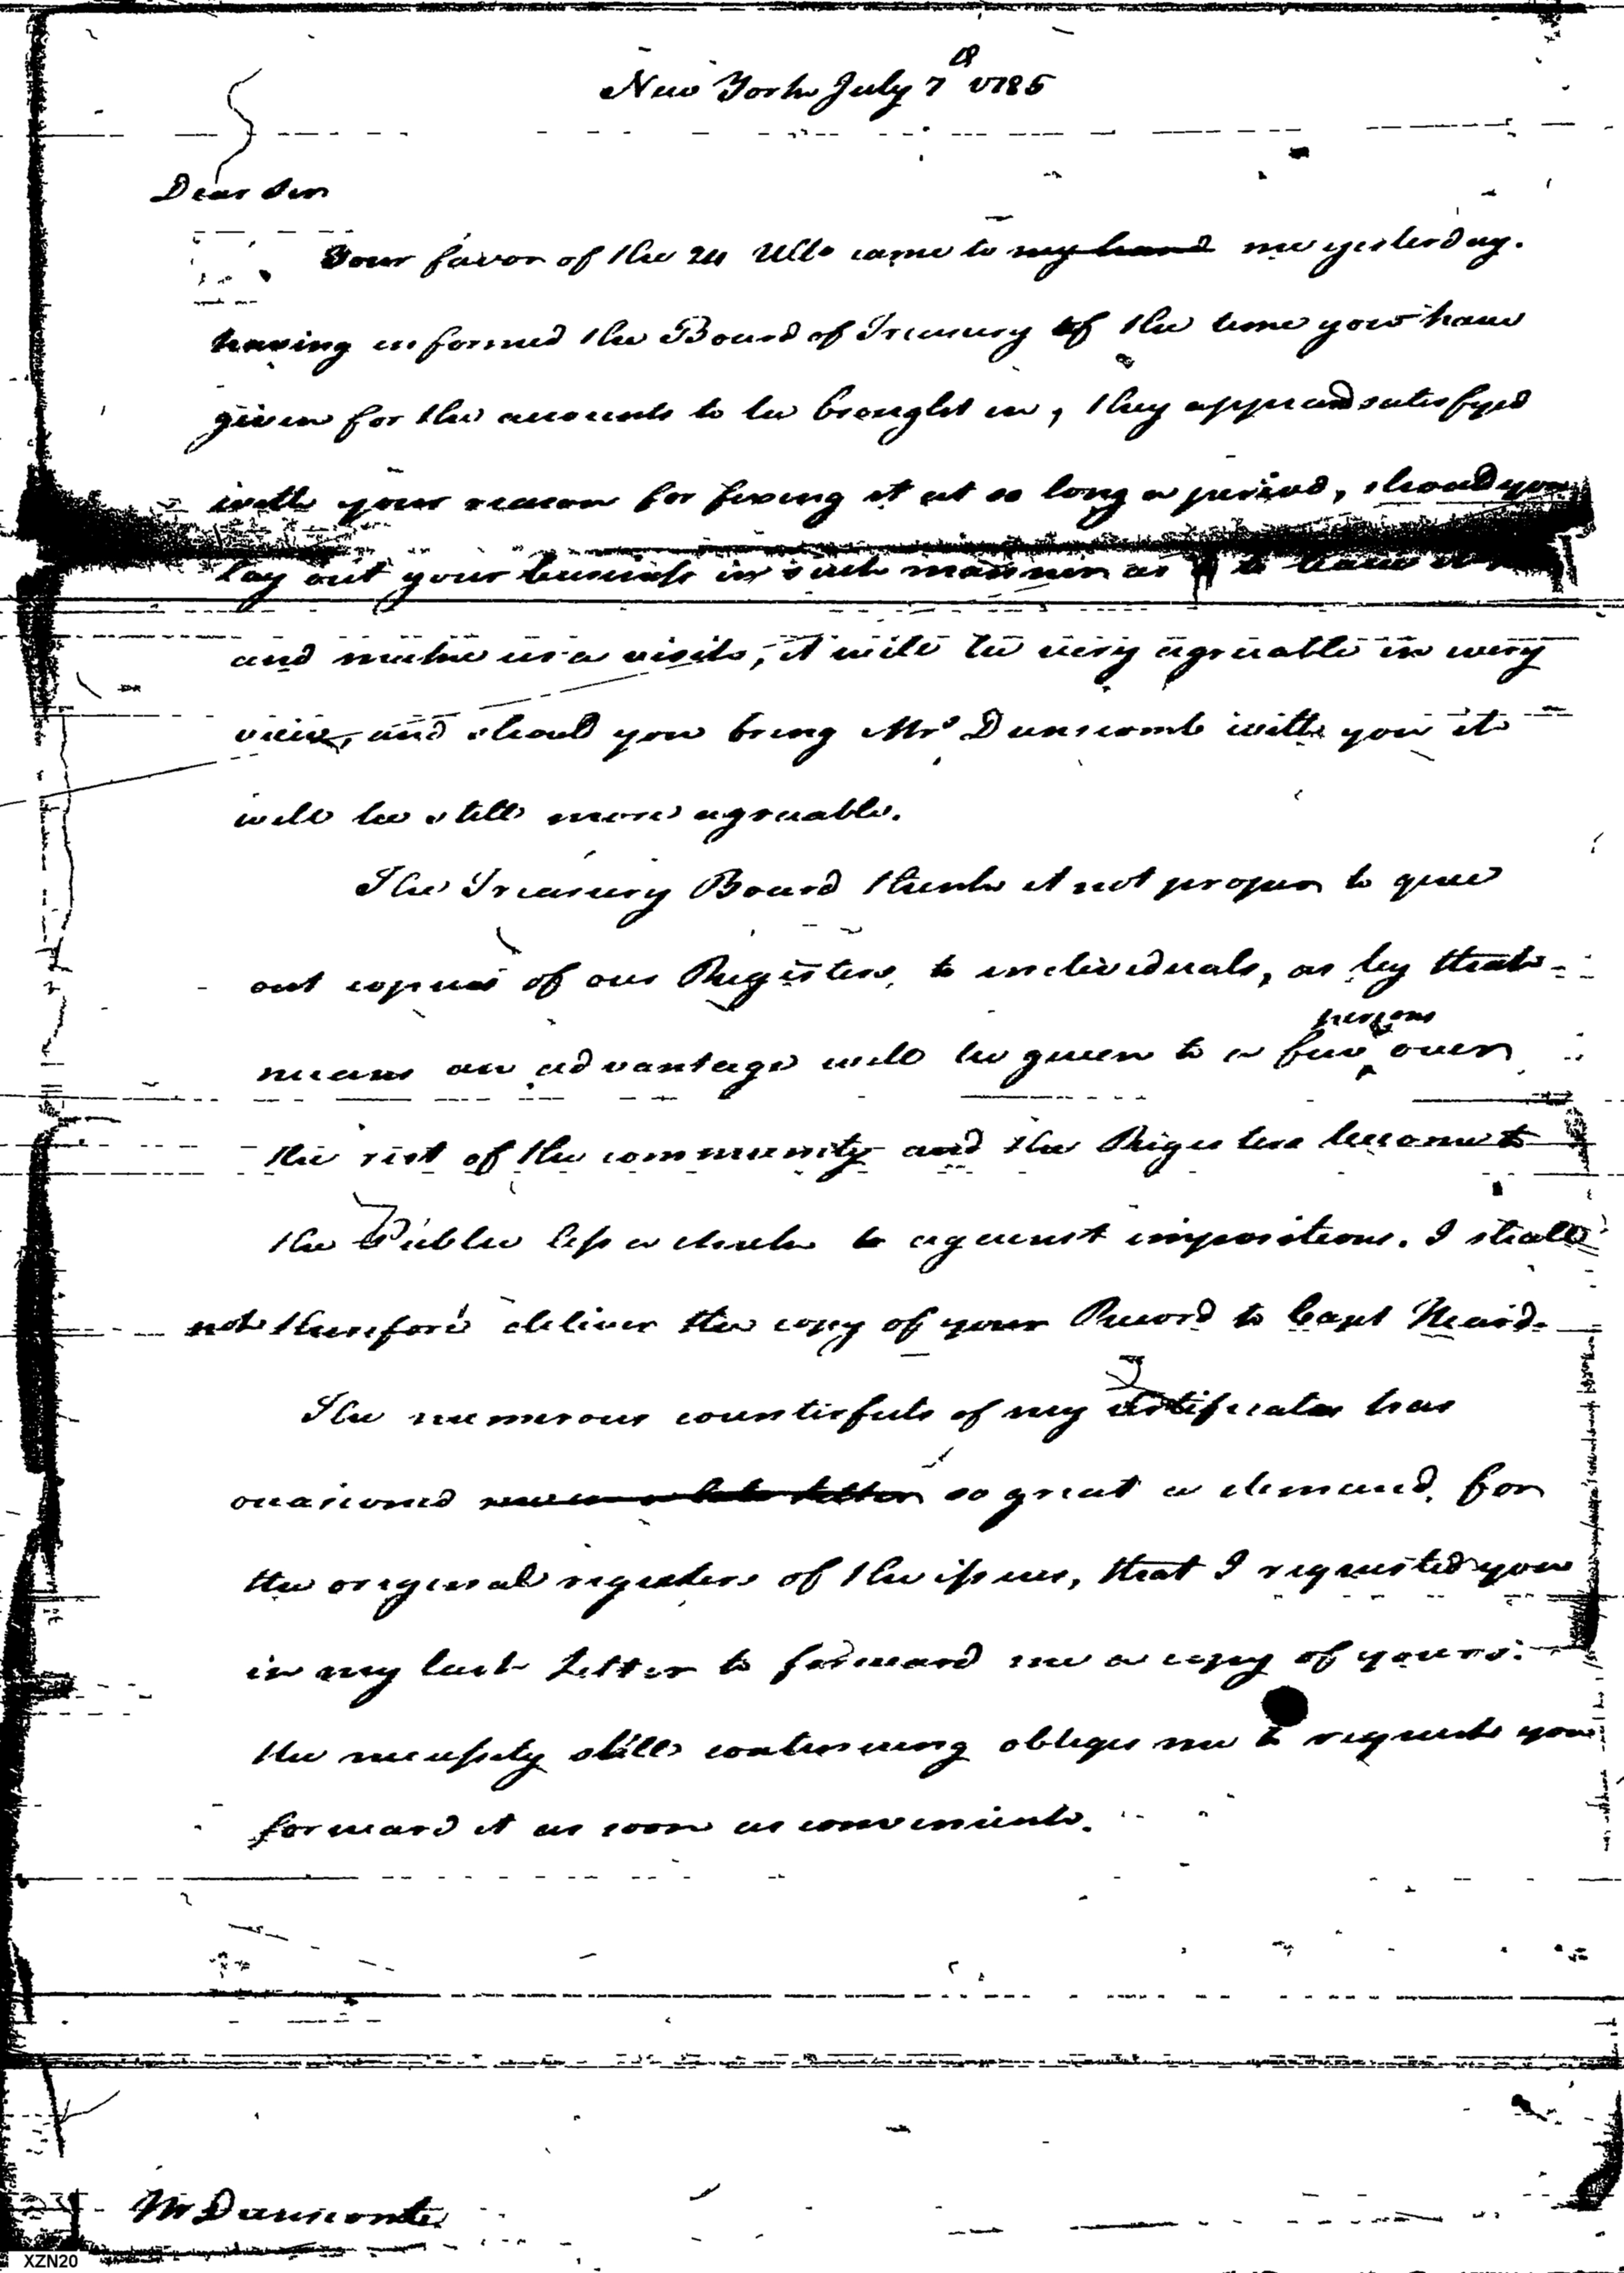 New York July 7th 1785
Dear Sir
Your favor of the 24 Ulto came to my hand me yesterday.
having informed the Board of Treasury of the time you have
given for the accounts to be brought in, they appeared satisfyed
with your reason for fixing it at so long a period, should you
lay out your business in such manner as to leave it
and make us a visit, it will be very agreable in every
view, and should you bring Mrs Dunscomb with you it
will be still more agreable.
The Treasury Board thinks it not proper to give
out copies of our Registers, to individuals, as by that
persons
means an advantage will be given to a few over
the rest of the community and the Registers become to
the Public less a check to against impositions. I shall
not therefore deliver the copy of your Record to Capt Heard.
The numerous counterfeits of my Certificates has
occasioned so great a demand for
the original registers of the issues, that I requested you
in my last letter to forward me a copy of yours.
the necessity still continuing obliges me to request you
forward it as soon as convenient.
Mr Dunscomb
XZN20